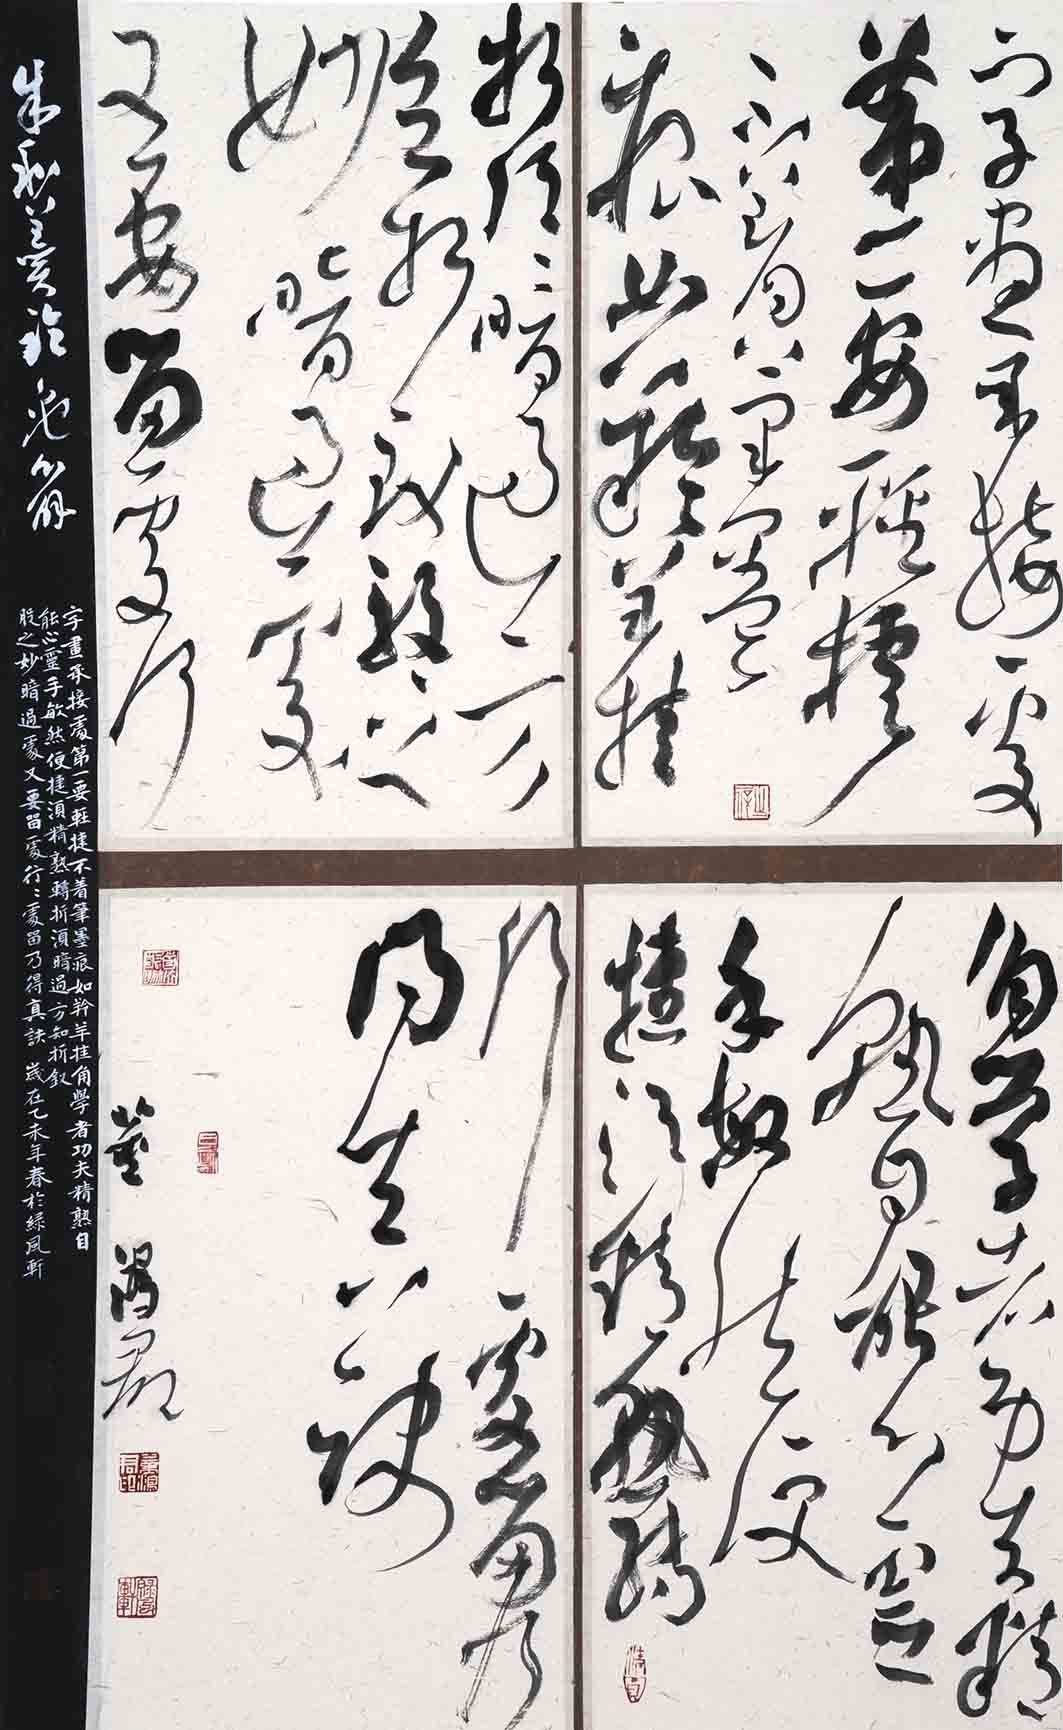 字畫承接處
第一要輕捷
不着筆墨
痕如羚羊挂
角學者功夫精
熟自能心靈
手敏然便
捷須精熟轉
折須暗過方
知折釵股之
妙暗過處
又要留處行
行處留乃
得真訣
董
朱和羹臨池心解
字畫承接處第一要輕捷不着筆墨痕如羚羊挂角學者功夫精熟自
能心靈手敏然便捷須精熟轉折須暗過方知折釵
股之妙暗過處又要留處行〻處留乃得真訣 歲在乙未年春於綠風軒